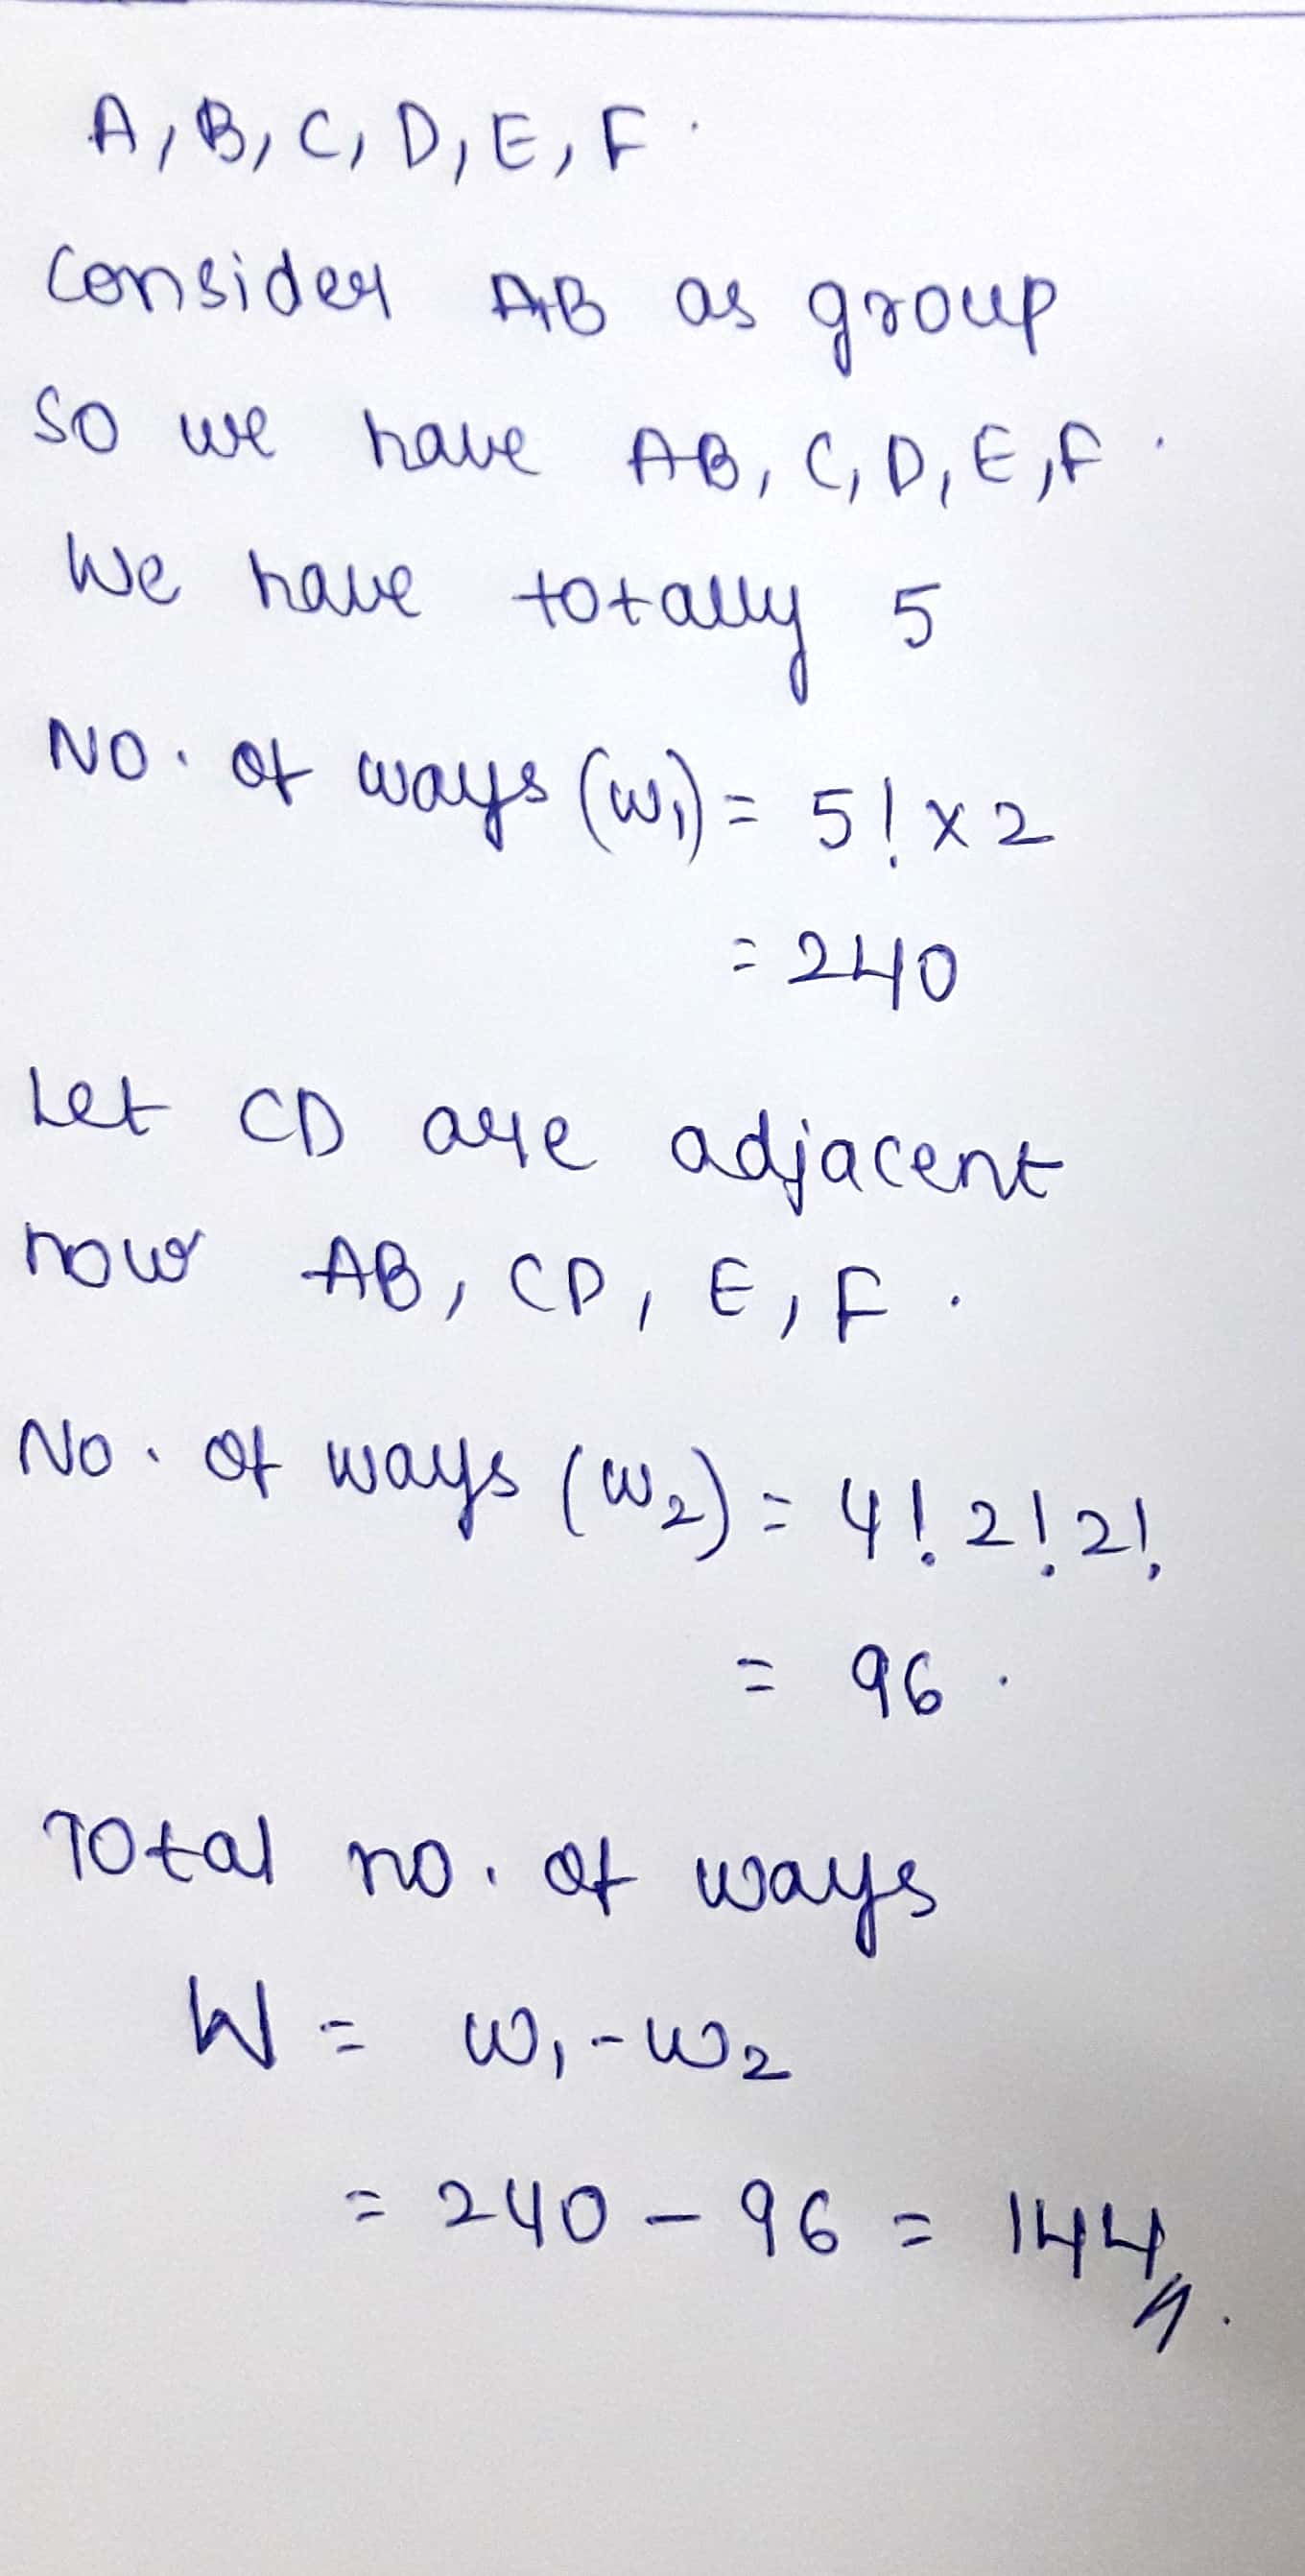 A, B, C, D, E, F.
Consider AB as group
So we have AB, C, D, E, F.
We have totally 5
No. of ways (W₁) = 5! x 2
= 240
Let CD are adjacent
now AB, CD, E, F.
No. of ways (W₂) = 4! 2! 2!
= 96.
Total no. of ways
W = W₁ - W₂
= 240 - 96 = 144